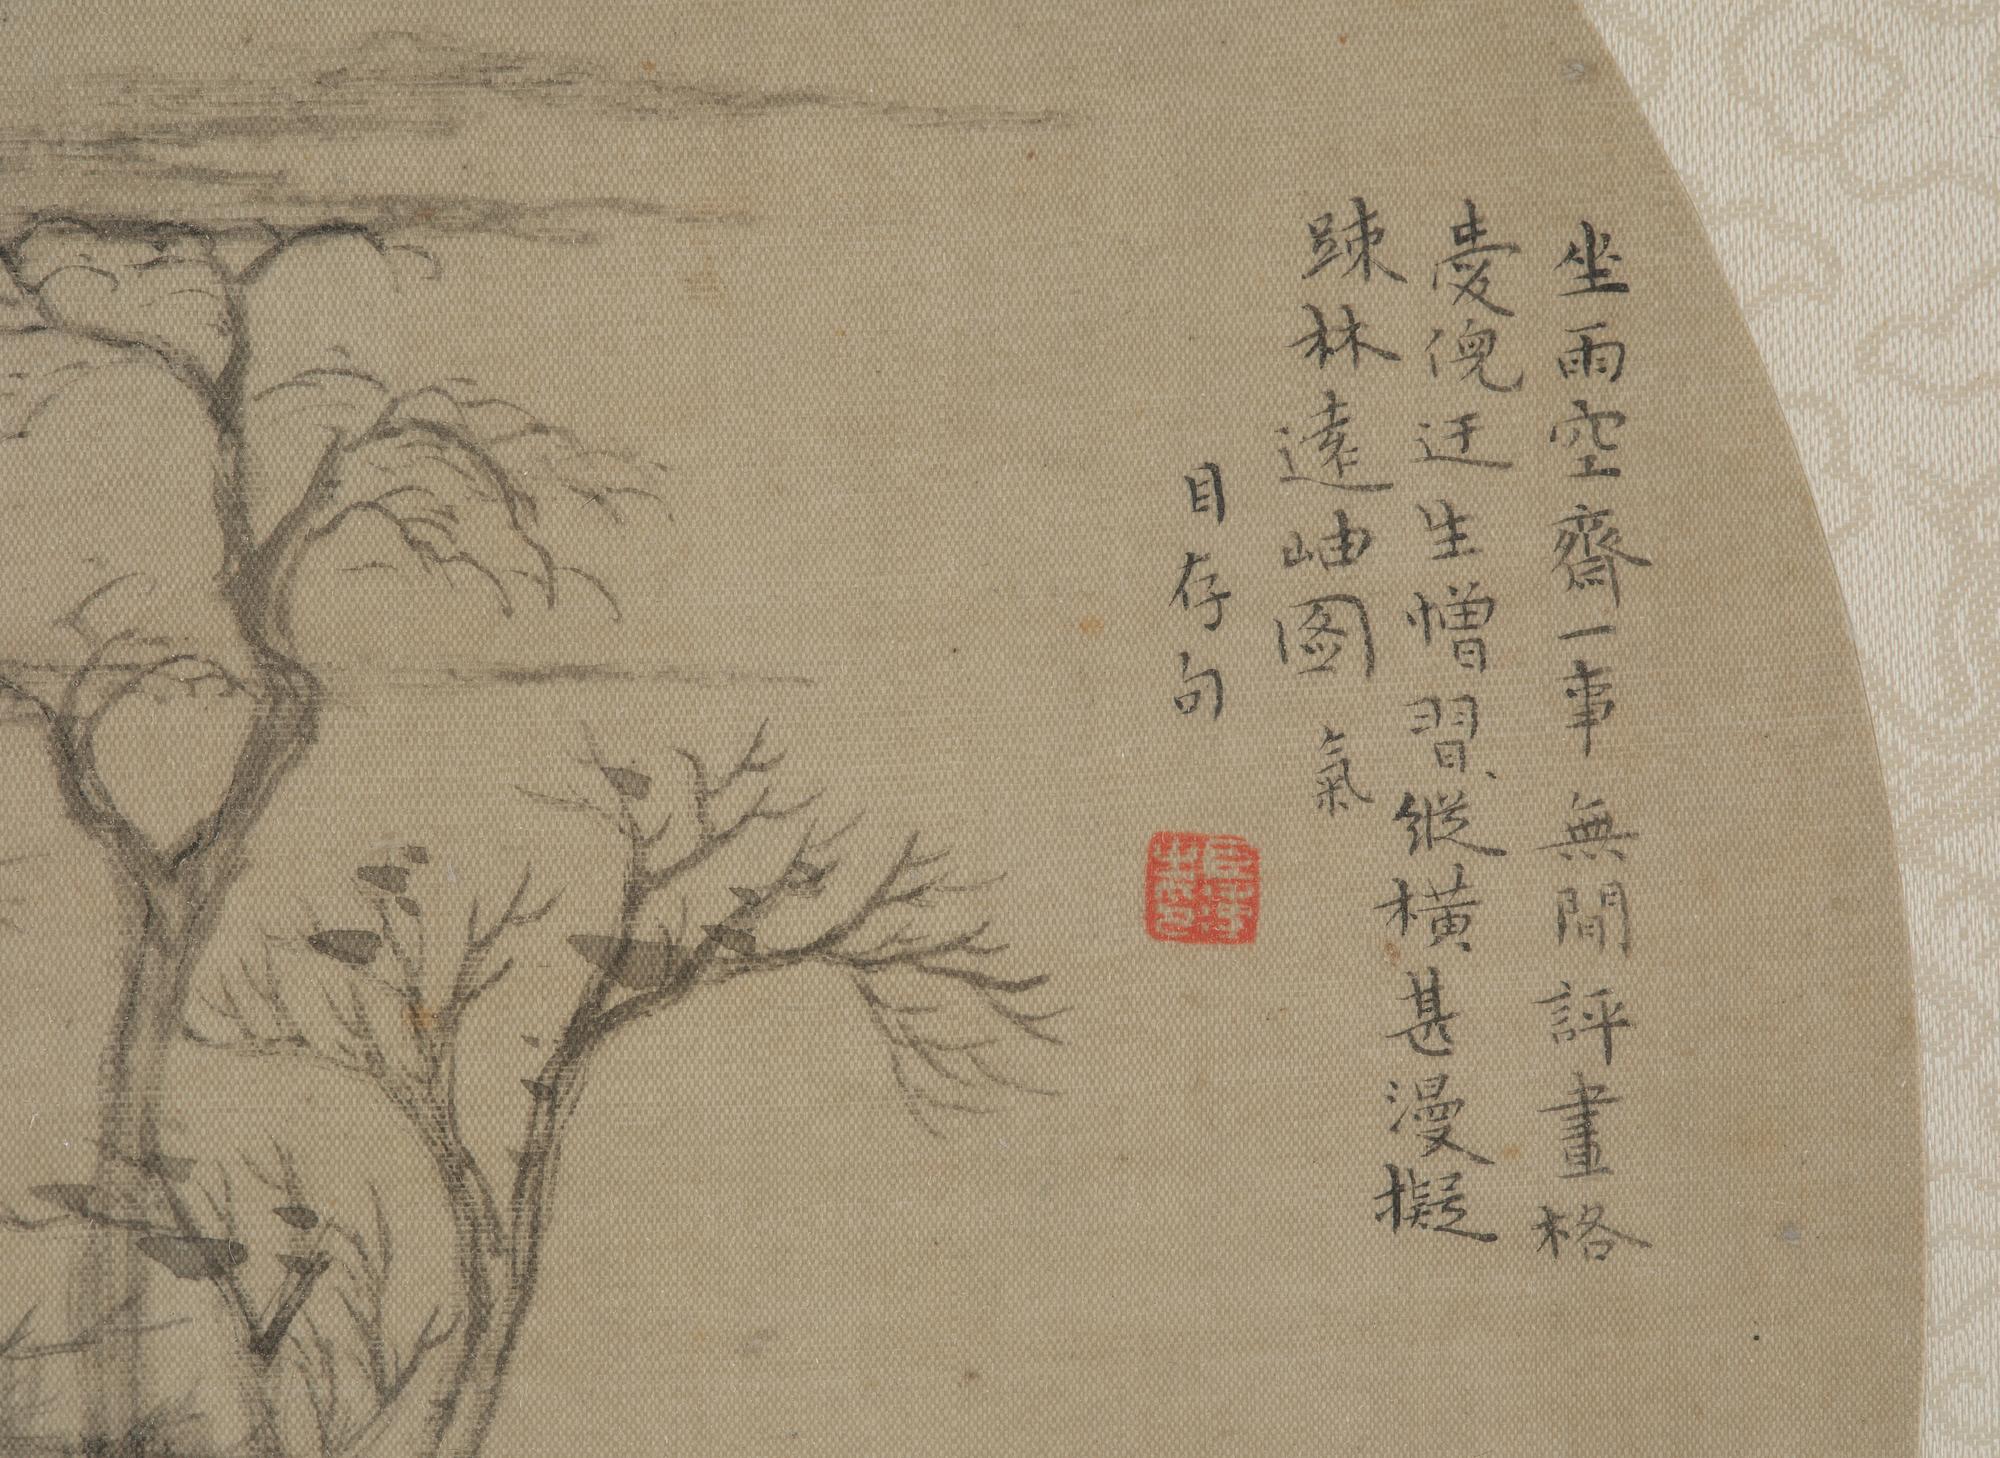 坐雨空齋一事無閒評畫格
愛倪迂生憎習縱橫甚漫擬
踈林遠岫圖 氣
目存句